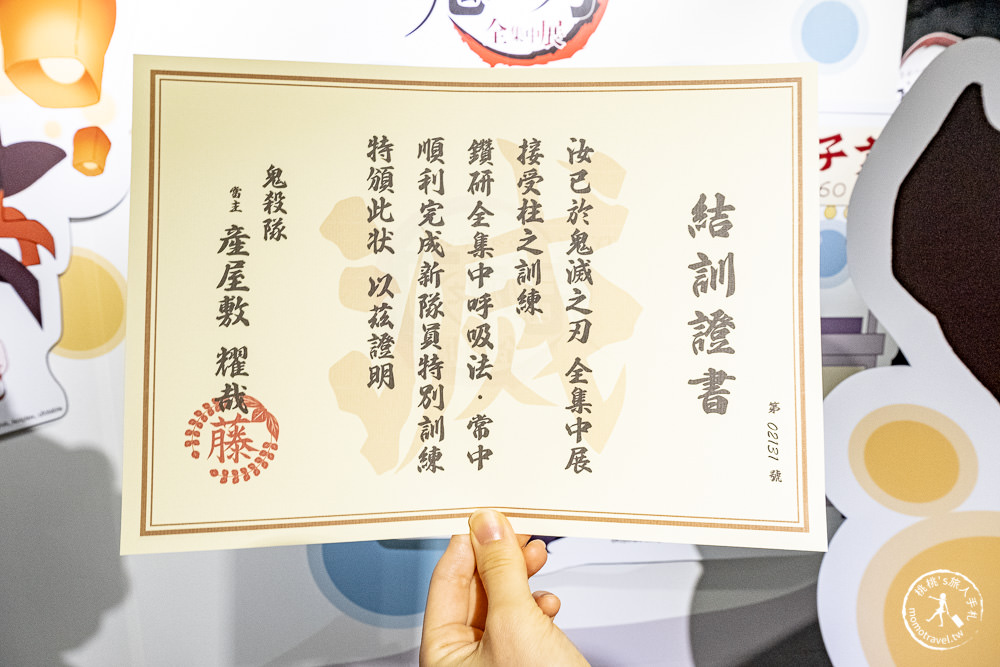 全集中展
結訓證書
第 02131 號
汝已於鬼滅之刃 全集中展
接受柱之訓練
鑽研全集中呼吸法・常中
順利完成新隊員特別訓練
特頒此状 以茲證明
鬼殺隊
當主 産屋敷 耀哉
藤
滅
子
60
桃桃's旅人手札
momotravel.tw